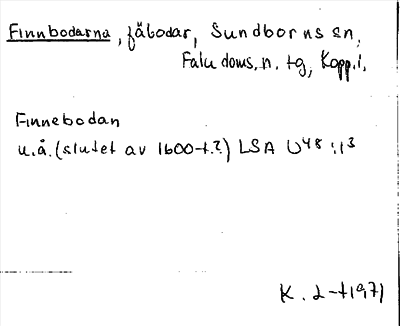 Finnbodarna, fäbodar, Sundborns sn,
Falu doms. n. tg, Kopp. l.
Finnebodan
u.å. (slutet av 1600-t.?) LSA U48:13
K. L-t 1971